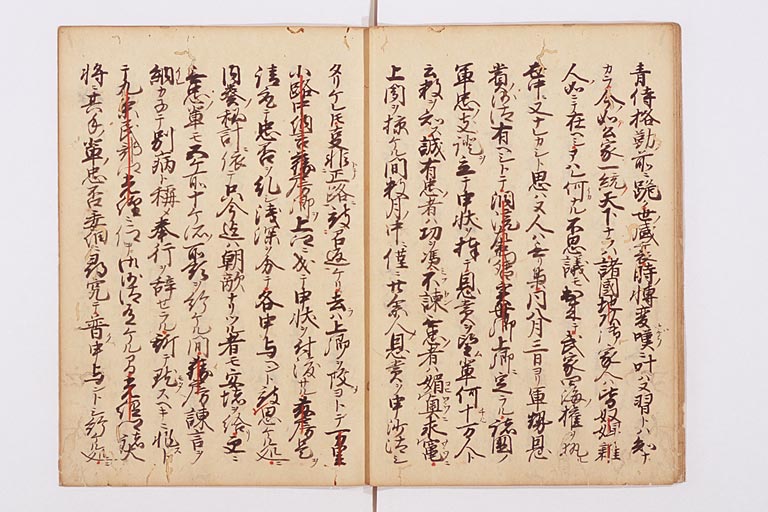 青侍格勤前ニ跪世盛衰時轉変嘆ニ叶ハヌ習トハ知ナ
カラ今如公家一統天下ナラハ諸國地頭家人ハ皆奴婢雑
人如ニテ在ヘシアハレ何ナル不思議モ出来テ武家四海権ヲ執
世中ニ又ナレカシト思ハヌ人ハ無リケリ同八月三日ヨリ軍勢恩
賞沙汰有ヘシトテ洞院左衛門督実世卿上卿定ラル諸國ノ
軍忠支證立テ申状ヲ捧テ恩賞ヲ望輩何千万人ト
云数ヲ知ス誠有忠者ハ功ヲ憑不諫無忠者ハ媚奥求竈
上聞ヲ掠ケル間数月中ニ僅ニ廿余人恩賞ヲ申沙汰シ
タリケレ氏事非正路被召返ケリ去ハ上卿ヲ改ヨトテ万里
小路中納言藤房卿上卿ニ成テ申状ヲ付渡サル藤房是ヲ
請取テ忠否ヲ糺シ浅深ヲ分テ各申与ヘント被思ケル処ニ
内奏秘計依テ只今迄ハ朝敵ナリツル者モ安堵ヲ給更ニ
無忠輩モ五ケ所十ケ所ノ恩ヲ行ケル間藤房諫言ヲ
納カ子テ別病ト稱メ奉行ヲ辞セラル
テ九条民部卿光經ニ仰テ御沙汰有ケル間光經諸大
将ニ其手軍忠否委細ニ尋究テ普申与ヘントシ給ケル処